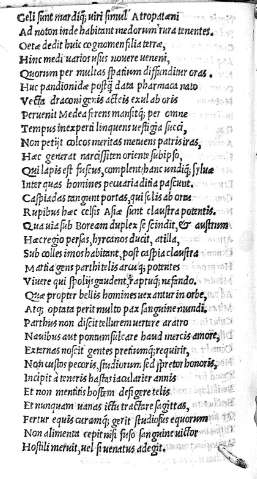 Geli sunt mardiq; uiri simul Atropatani
Ad noton inde habitant medorum rura tenentes.
Oetæ dedit huic cognomen filia terræ,
Hinc medi uarios usus nouere ueneni,
Quorum per multas spatium diffunditur oras.
Huc pandionidæ postq̃ data pharmaca nato
Vecta draconigenis actæis exul ab oris
Peruenit Medea ferens mansitq; per omne
Tempus inexperti linquens uestigia succi,
Non petijt colcos meritas metuens patris iras,
Hæc generat narcissiten oriente sub ipso,
Qui lapis est fuscus, complent hanc undiq; syluæ
Inter quas homines pecuaria ditia pascunt.
Caspiadas tangunt portas, qui solis ab ortu
Rupibus hæc celsis Asiæ sunt claustra potentis.
Qua uia sub Boream duplex se scindit, & austrum
Hæc regio persas, hyrcanos ducit, at illa,
Sub colles imos habitant, post caspia claustra
Martia gens parthi telis arcuq; potentes
Viuere qui spolijs gaudent, raptuq; nefando.
Quæ propter bellis homines uexantur in orbe,
Atq; optata perit multo pax sanguine mundi.
Parthus non discit tellurem uertere aratro
Nauibus aut pontum sulcare haud nurcis amore,
Externas noscit gentes pretiumq; requirit,
Non custos pecoris, studiorum sed spretor honoris,
Incipit à teneris hastas iacularier annis
Et non mentitis hostem defigere telis
Et nunquam uanas ictu tractare sagittas,
Fertur equis curamq; gerit studiosus equorum
Non alimenta cepit nisi fuso sanguine uictor
Hostili meruit, uel si uenatus adegit.